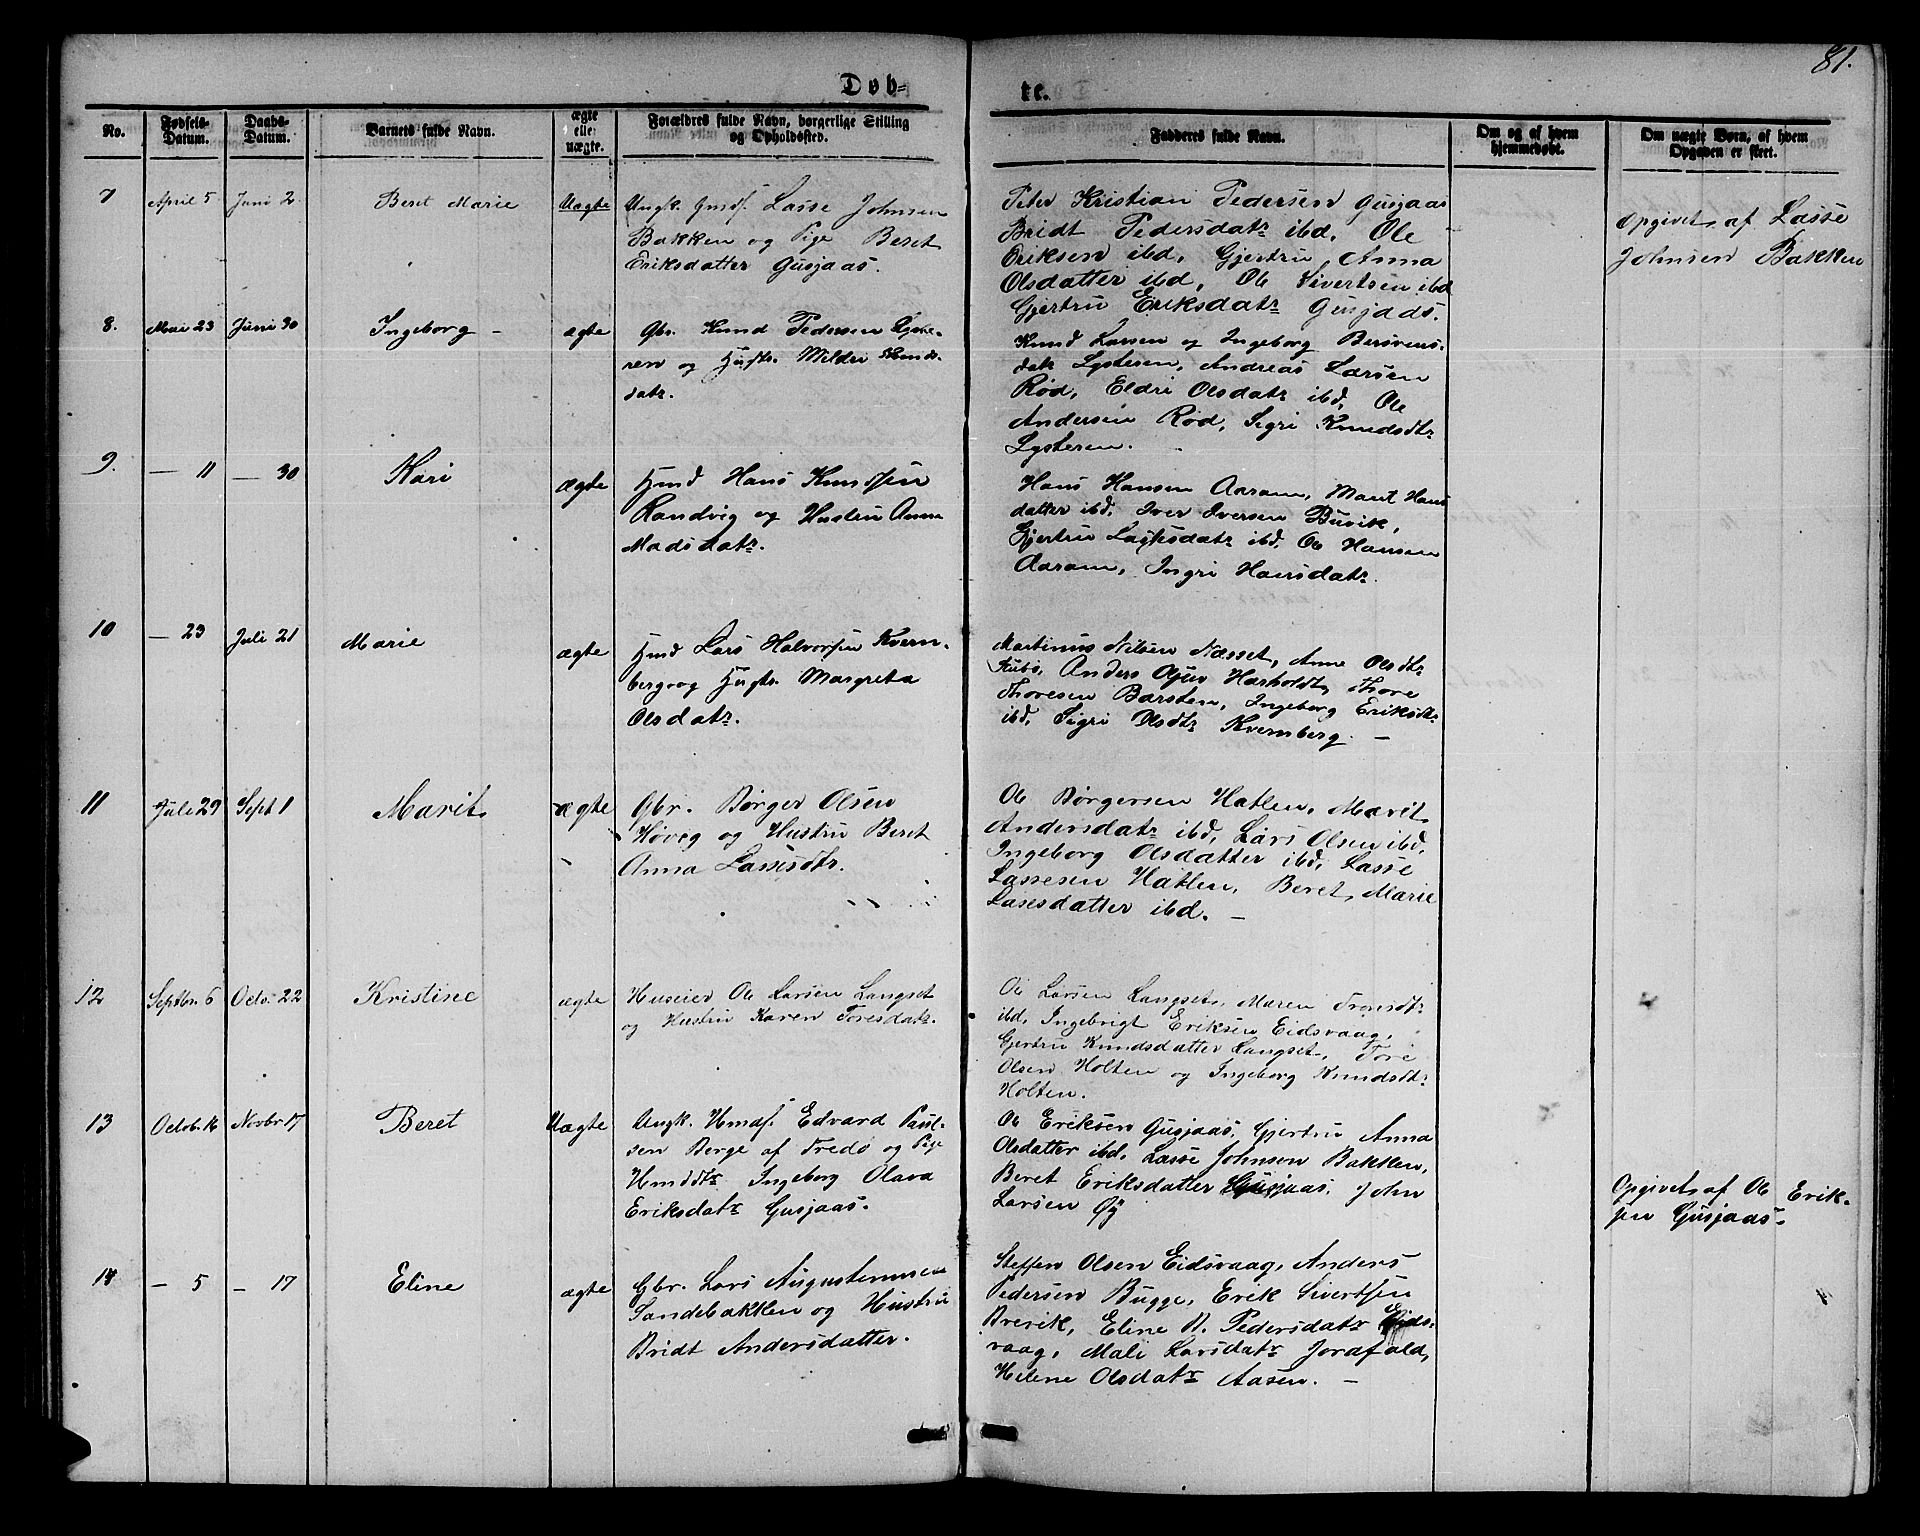 81.
Døb-
te.
No.
Fødsels-
Datum.
Daabs-
Datum.
Barnets fulde Navn.
ægte
eller
uægte.
Forældres fulde Navn, borgerlige Stilling
og Opholdssted.
Fadderes fulde Navn.
Om og af hvem
hjemmedøbt.
Om uægte Børn, af hvem
Opgaven er skeet.
7
April 5
Juni 2
Beret Marie
Uægte
Ungk. Gmdf. Lasse Johnsen
Bakken og Pige Beret
Eriksdatter Gusjaas.
Peter Kristian Pedersen Gusjaas
Bridt Pedersdatr ibd, Ole
Eriksen ibd, Gjertru Anna
Olsdatter ibd, Ole Sivertsen ibd
Gjertru Eriksdatr Gusjaas.
Opgivet af Lasse
Johnsen Bakken
8.
Mai 23
Juni 30
Ingeborg -
ægte
Gbr. Knud Pedersen Lyste-
ren og Hustr. Mildri Knuds-
datr.
Knud Larsen og Ingeborg Bersvens-
datr Lysteren, Andreas Larsen
Rød, Eldri Olsdatr ibd, Ole
Andersen Rød, Sigri Knudsdtr
Lysteren.
9.
— 11
— 30
Kari
ægte
Hmd Hans Knudsen
Randvig og Hustru Anne
Madsdatr.
Hans Hansen Aaram, Marit Hans
datter ibd, Iver Iversen Buvik,
Gjertru Lassesdatr ibd, Ole Hansen
Aaram, Ingri Hansdatr.
10
— 23
Juli 21
Marie
ægte
Hmd Lars Halvorsen Kvern-
berg og Hustr. Margreta
Olsdatr.
Martinus Nilsen Næsset, Anne Olsdtr
Kubø, Anders Harholdt, Thore
Thoresen Barsten, Ingeborg Eriksdtr
ibd, Sigri Olsdtr Kvernberg. —
11
Juli 29
Sept 1
Marit
ægte
Gbr. Børger Olsen
Høvig og Hustru Beret
Anna Lassesdtr.
Ole Børgersen Hatlen, Marit
Andersdatr ibd, Lars Olsen ibd,
Ingeborg Olsdatter ibd, Lasse
Lassesen Hatlen, Beret Marie
Lasesdatter ibd. —
12
Septbr. 6
Octo. 22
Kristine
ægte
Huseier Ole Larsen Langset
og Hustru Karen Toresdatr.
Ole Larsen Langset, Maren Tronsdtr
ibd, Ingebrigt Eriksen Eidsvaag,
Gjertru Knudsdatter Langset, Tore
Olsen Holten og Ingeborg Knudsdtr
Holten.
13
Octob. 16
Novbr 17
Beret
Uægte
Ungk. Hmdf. Edvard Paul-
sen Berge af Fredø og Pige
Hmddtr Ingeborg Olava
Eriksdatr Gusjaas.
Ole Eriksen Gusjaas, Gjertru Anna
Olsdatter ibd, Lasse Johnsen Bakken,
Beret Eriksdatter Gusjaas, John
Larsen Øy
Opgivet af Ole Erik-
sen Gusjaas.
14
— 5
— 17
Eline
ægte
Gbr. Lars Augustinusen
Sandebakken og Hustru
Bridt Andersdatter.
Steffen Olsen Eidsvaag, Anders
Pedersen Bugge, Erik Sivertsen
Brevik, Eline B. Pedersdatr Eids-
vaag, Mali Larsdatr Jordfald,
Helene Olsdatr Aasen. —